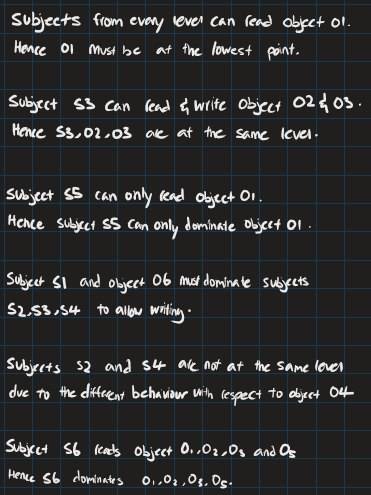 Subjects from every level can read object O1.
Hence O1 must be at the lowest point.
Subject S3 can read & write object O2 & O3.
Hence S3, O2, O3 are at the same level.
Subject S5 can only read object O1.
Hence subject S5 can only dominate object O1.
Subject S1 and object O6 must dominate subjects
S2, S3, S4 to allow writing.
Subjects S2 and S4 are not at the same level
due to the different behaviour with respect to object O4
Subject S6 reads object O1, O2, O3 and O5
Hence S6 dominates O1, O2, O3, O5.